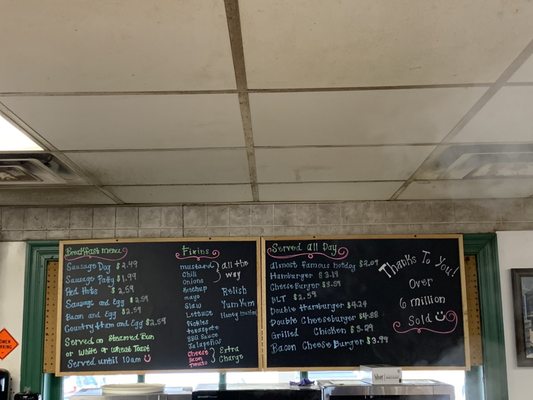 Breakfast menu
Sausage Dog $2.49
Sausage Patty $1.99
Red Hots $2.59
Sausage and Egg $2.59
Bacon and Egg $2.59
Country Ham and Egg $2.59
Served on Steamed Bun
or White or Wheat Toast
Served until 10am
Fixins
mustard
Chili
Onions
all the
way
Ketchup
mayo
Slaw
Lettuce
Pickles
Texas Pete
BBQ Sauce
Jalapeño
Relish
Yum Yum
Honey mustard
Cheese
Bacon
Tomato
Extra
Charge
Served All Day
almost famous hotdog $2.09
Hamburger $3.39
CheeseBurger $3.59
BLT $2.59
Double Hamburger $4.24
Double Cheeseburger $4.88
Grilled Chicken $3.29
Bacon CheeseBurger $3.94
Thanks To You!
Over
6 million
Sold
WORK